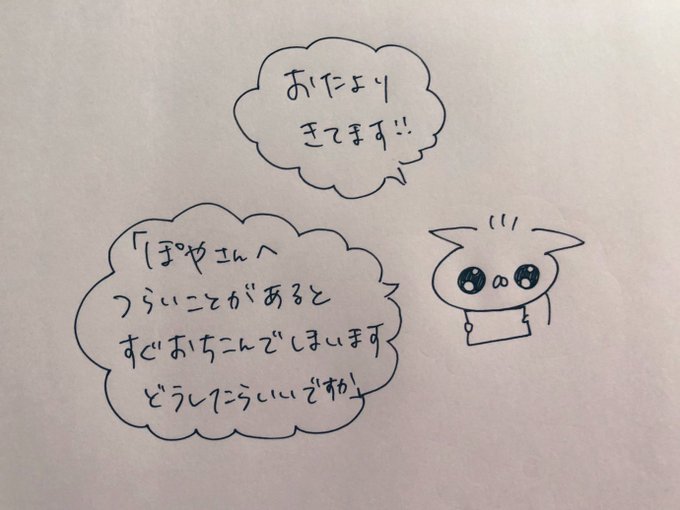 おたより
きてます!!
「ぽやさんへ
つらいことがあると
すぐおちこんでしまいます
どうしたらいいですか」